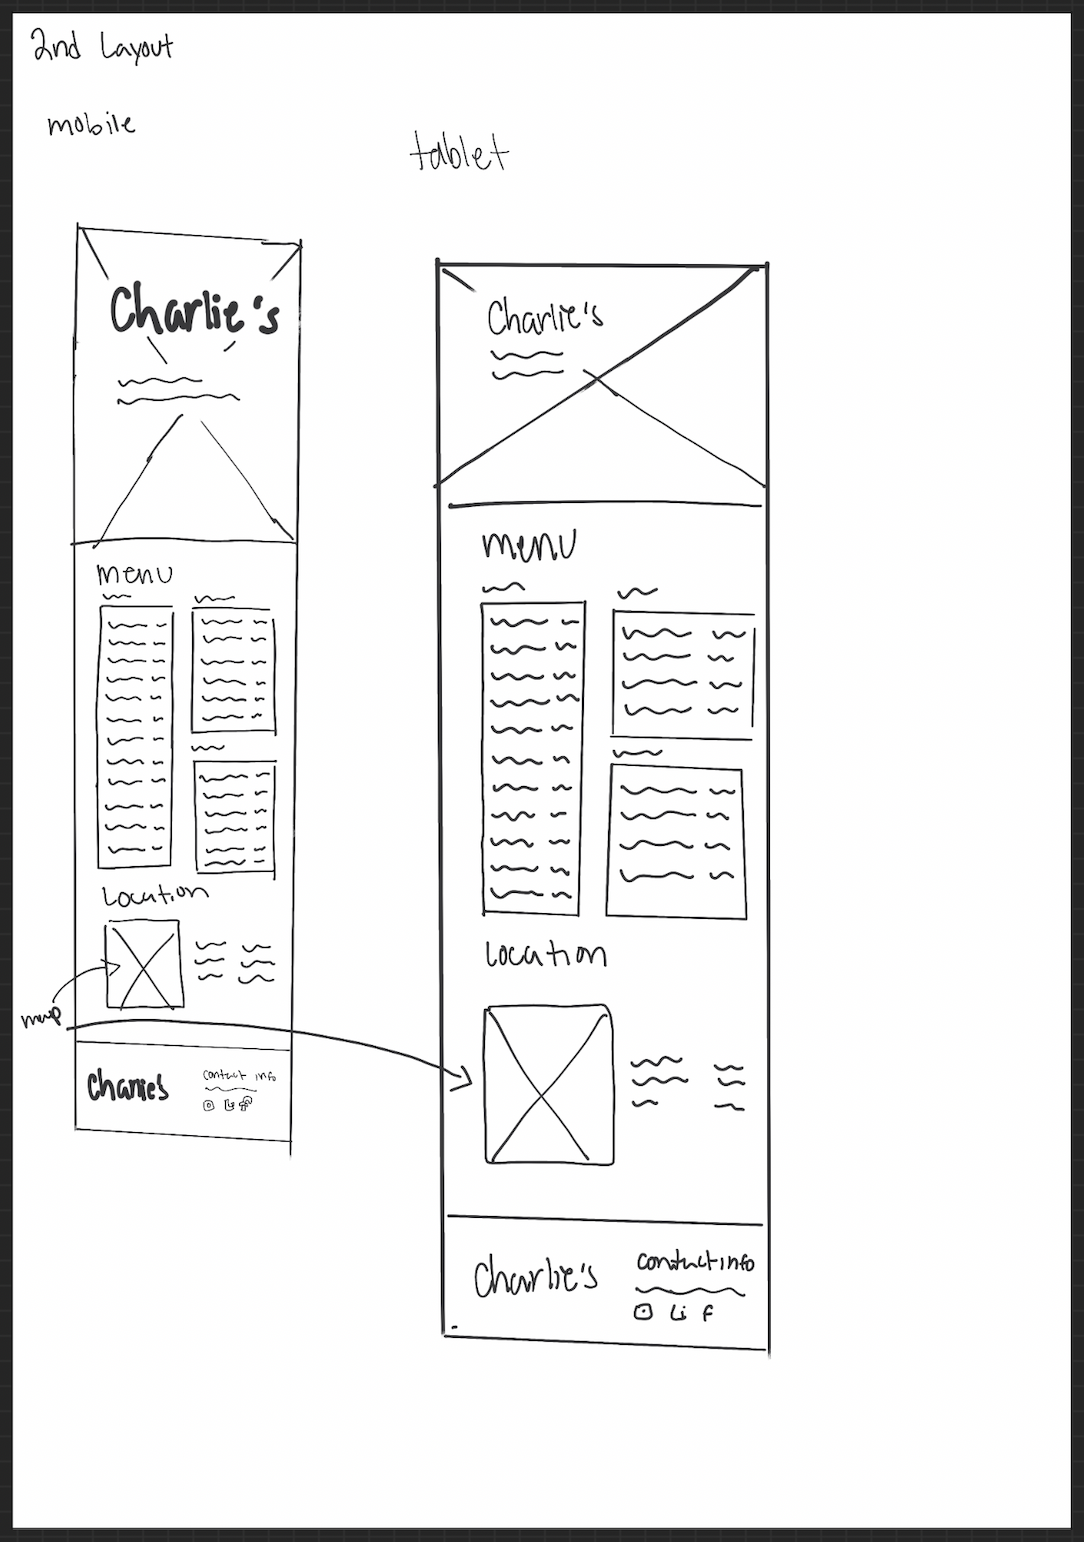 2nd Layout
mobile
tablet
Charlie's
menu
Location
map
Charlie's
contact info
Charlie's
menu
Location
Charlie's
contact info
Li f